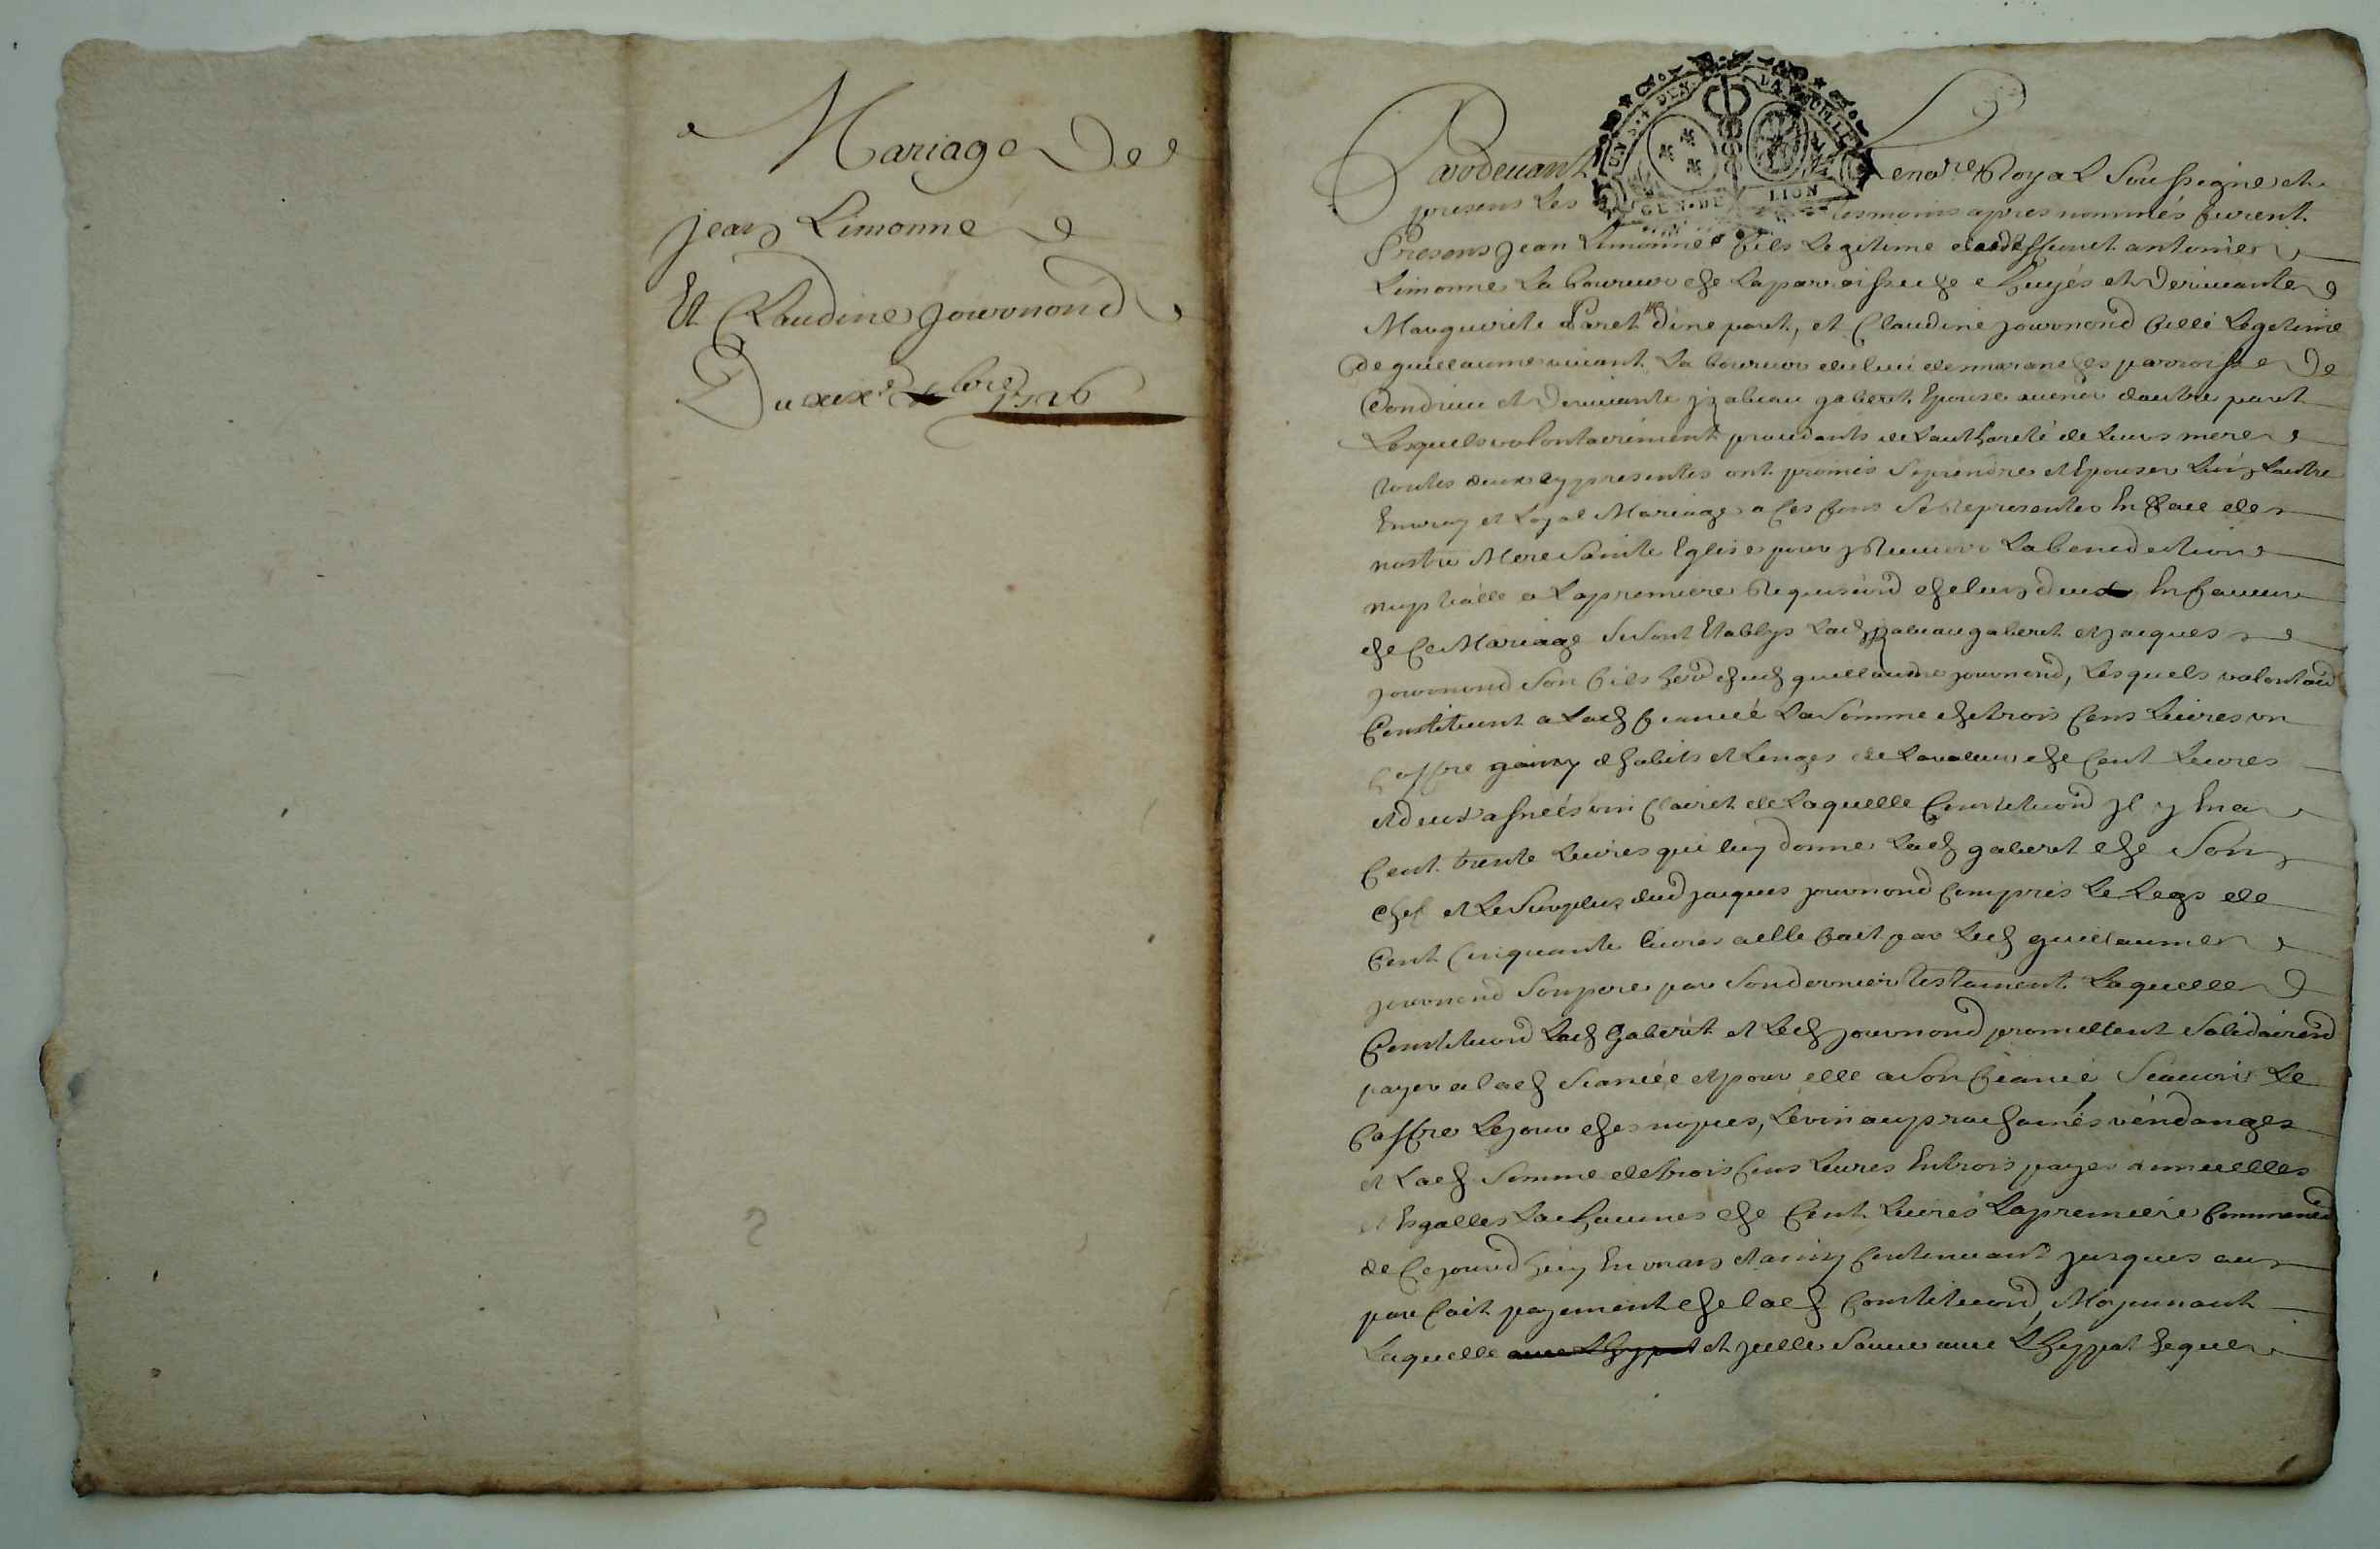 Mariage De
jean Limonne
Et Claudine journond
Du xix.e bre 1726
Pardevant Le no.re Royal Soussigne et
presens Les tesmoins apres nommés furent
Presens jean Limonne fils Legitime deffunt antoine
Limonne Laboureur de La parroisse de et vivante
Marguerite Paret d'une part, et Claudine journond fille Legitime
de guillaume vivant Laboureur du lieu de paroisse De
Condrieu et vivante jzabeau galeret Epouse avenir dautre part
Lesquels volontairement de Lauthorité de Leurs meres
toutes deux cy presentes ont promis Se prendre et Epouser Lun Lautre
En vray et Loyal Mariage a Ces fins Se representer En face de
nostre Mere Sainte Eglise pour y Recevoir La benediction
nuptialle a La premiere de Lun deux En faveur
de Ce Mariage Se Sont Etablys Lad jzabeau galeret et jacques
journond Son fils dud guillaume journond, Lesquels
Constituent a Lad fiancée La Somme de trois Cens Livres un
Coffre garny d habits et Linges de La valeur de Cent Livres
et deux asnées vin Clairet de Laquelle jl y En a
Cent trente Livres que luy donne Lad galeret de Son
Chef et Le Surplus dud jacques journond Compris Le Legs de
Cent Cinquante livres a elle fait par Led guillaume
journond Son pere par Son dernier testament Laquelle
Lad Galeret et Led journond promettent
payer a lad fiancée et pour elle a Son fiancé Scavoir Le
Coffre Le jour des nopces, Le vin aux prochaines vendanges
et Lad Somme de trois Cens Livres En trois payes annuelles
et Esgalles de Cent Livres La premiere
de En un an et ainsy Continuant jusques au
parfait payement de lad Moyennant
Laquelle et jcelle Sauve avec
GEN. DE LION